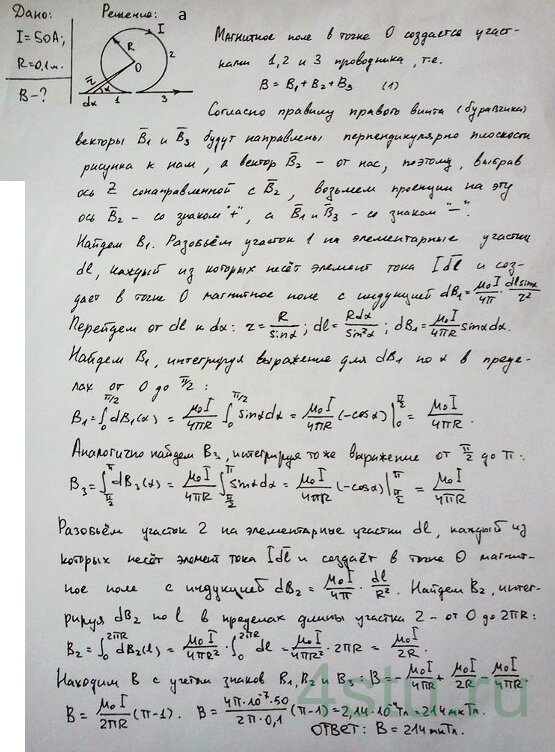 Дано:
I=50А;
R=0,1м.
B-?
Решение: a
I
R
O
2
r
α
dα
1
3
Магнитное поле в точке O создаётся участ-
ками 1,2 и 3 проводника, т.е.
B = B₁ + B₂ + B₃ (1)
Согласно правилу правого винта (буравчика)
векторы B̄₁ и B̄₃ будут направлены перпендикулярно плоскости
рисунка к нам, а вектор B̄₂ – от нас, поэтому, выбрав
ось Z сонаправленной с B̄₂, возьмем проекции на эту
ось B̄₂ – со знаком "+", а B̄₁ и B̄₃ – со знаком "–".
Найдем B₁. Разобьём участок 1 на элементарные участки
dl, каждый из которых несёт элемент тока Idl̄ и соз-
даёт в точке O магнитное поле с индукцией dB₁ = μ₀I/4π · dl sinα/r²
Перейдем от dl к dα: r = R/sinα; dl = Rdα/sin²α; dB₁ = μ₀I/4πR sinαdα.
Найдем B₁, интегрируя выражение для dB₁ по α в преде-
лах от 0 до π/2:
B₁ = ∫₀^(π/2) dB₁(α) = μ₀I/4πR ∫₀^(π/2) sinαdα = μ₀I/4πR (-cosα)|₀^(π/2) = μ₀I/4πR.
Аналогично найдем B₃, интегрируя тоже выражение от π/2 до π:
B₃ = ∫_(π/2)^π dB₃(α) = μ₀I/4πR ∫_(π/2)^π sinαdα = μ₀I/4πR (-cosα)|_(π/2)^π = μ₀I/4πR
Разобьём участок 2 на элементарные участки dl, каждый из
которых несёт элемент тока Idl̄ и создаёт в точке O магнит-
ное поле с индукцией dB₂ = μ₀I/4π · dl/R². Найдем B₂, интег-
рируя dB₂ по l в пределах длины участка 2 – от 0 до 2πR:
B₂ = ∫₀^(2πR) dB₂(l) = μ₀I/4πR² · ∫₀^(2πR) dl = μ₀I/4πR² · 2πR = μ₀I/2R.
Находим B с учётом знаков B₁, B₂ и B₃: B = -μ₀I/4πR + μ₀I/2R - μ₀I/4πR
B = μ₀I/2πR (π-1). B = 4π·10⁻⁷·50/2π·0,1 (π-1) = 2,14·10⁻⁴Тл = 214мкТл.
Ответ: B = 214мкТл.
4stu.ru